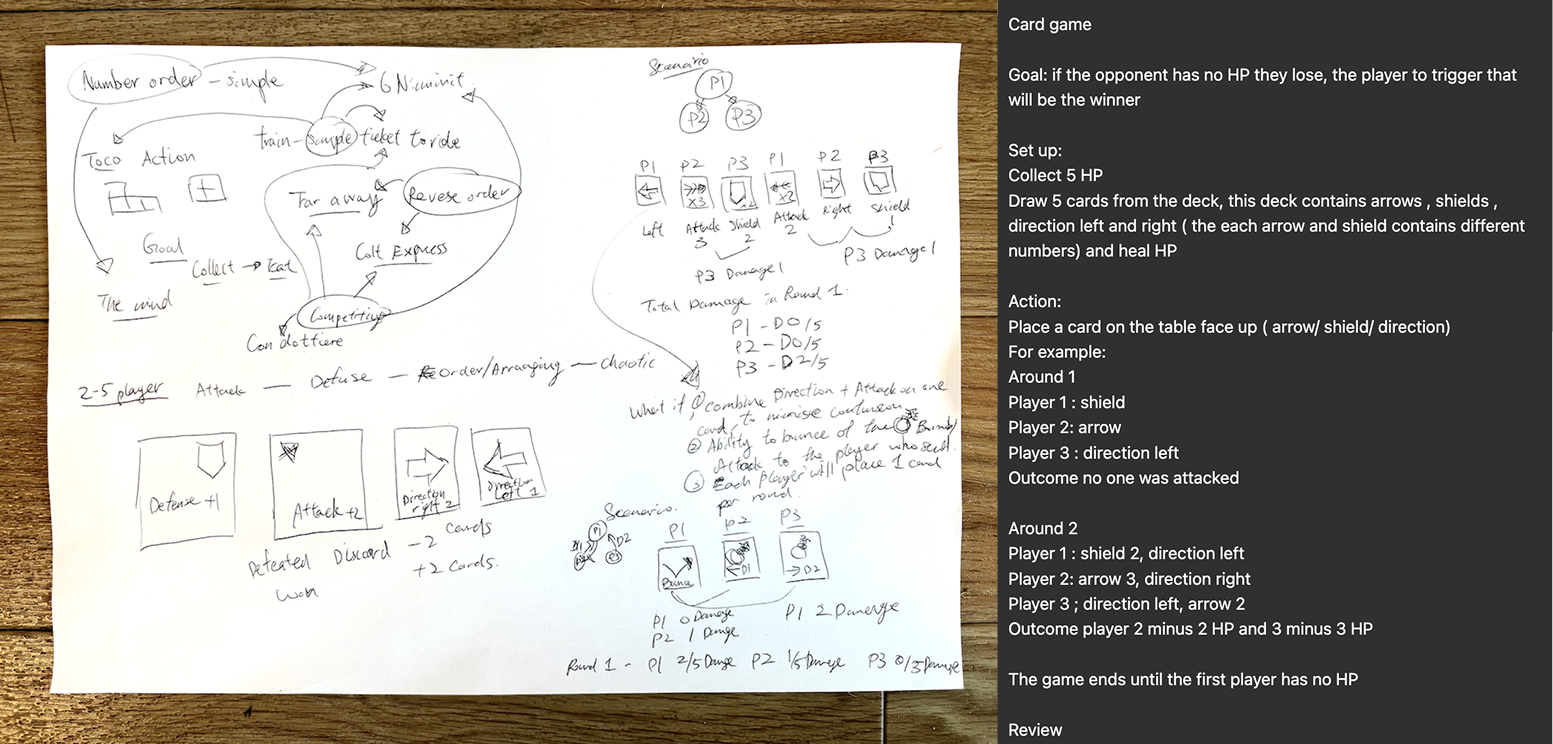 Number order – simple
6 Nimmit
train – simple ticket to ride
Toco Action
Far away
Revese order
Goal
Collect → Eat
Colt Express
The mind
Competiting
Condottiere
2-5 player Attack — Defuse — Order/Arranging — Chaotic
Defense +1
Attack +2
Direction right 2
Direction left 1
Defeated Discard – 2 cards
won +2 cards.
Scenario
P1
P2 P3
P1 P2 P3 P1 P2 P3
X3 X2
Left Attack 3 Shield 2 Attack 2 Right Shield 1
P3 Damage 1
P3 Damage 1
Total Damage in Round 1.
P1 – D0/5
P2 – D0/5
P3 – D2/5
What if ① combine Direction + Attack on one
card, to minimise confusion
② Ability to bounce of the Bomb/
Attack to the player who sent.
③ Each player will place 1 card
per round.
Scenario.
P1
D1 D2
P2 P3
P1 P2 P3
Bounce
← D1
→ D2
P1 0 Damage
P2 1 Damage
P1 2 Damage
Round 1 – P1 2/5 Damage P2 1/5 Damage P3 0/5 Damage
Card game
Goal: if the opponent has no HP they lose, the player to trigger that
will be the winner
Set up:
Collect 5 HP
Draw 5 cards from the deck, this deck contains arrows , shields ,
direction left and right ( the each arrow and shield contains different
numbers) and heal HP
Action:
Place a card on the table face up ( arrow/ shield/ direction)
For example:
Around 1
Player 1 : shield
Player 2: arrow
Player 3 : direction left
Outcome no one was attacked
Around 2
Player 1 : shield 2, direction left
Player 2: arrow 3, direction right
Player 3 ; direction left, arrow 2
Outcome player 2 minus 2 HP and 3 minus 3 HP
The game ends until the first player has no HP
Review